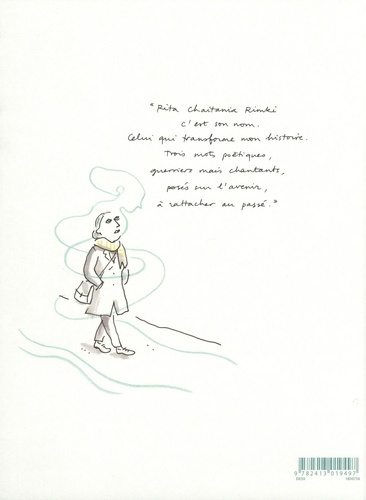 "Rita Chaitania Rimki
c'est son nom.
Celui qui transforme mon histoire.
Trois mots poétiques,
guerriers mais chantants,
posés sur l'avenir,
à rattacher au passé."
9 782413 019497